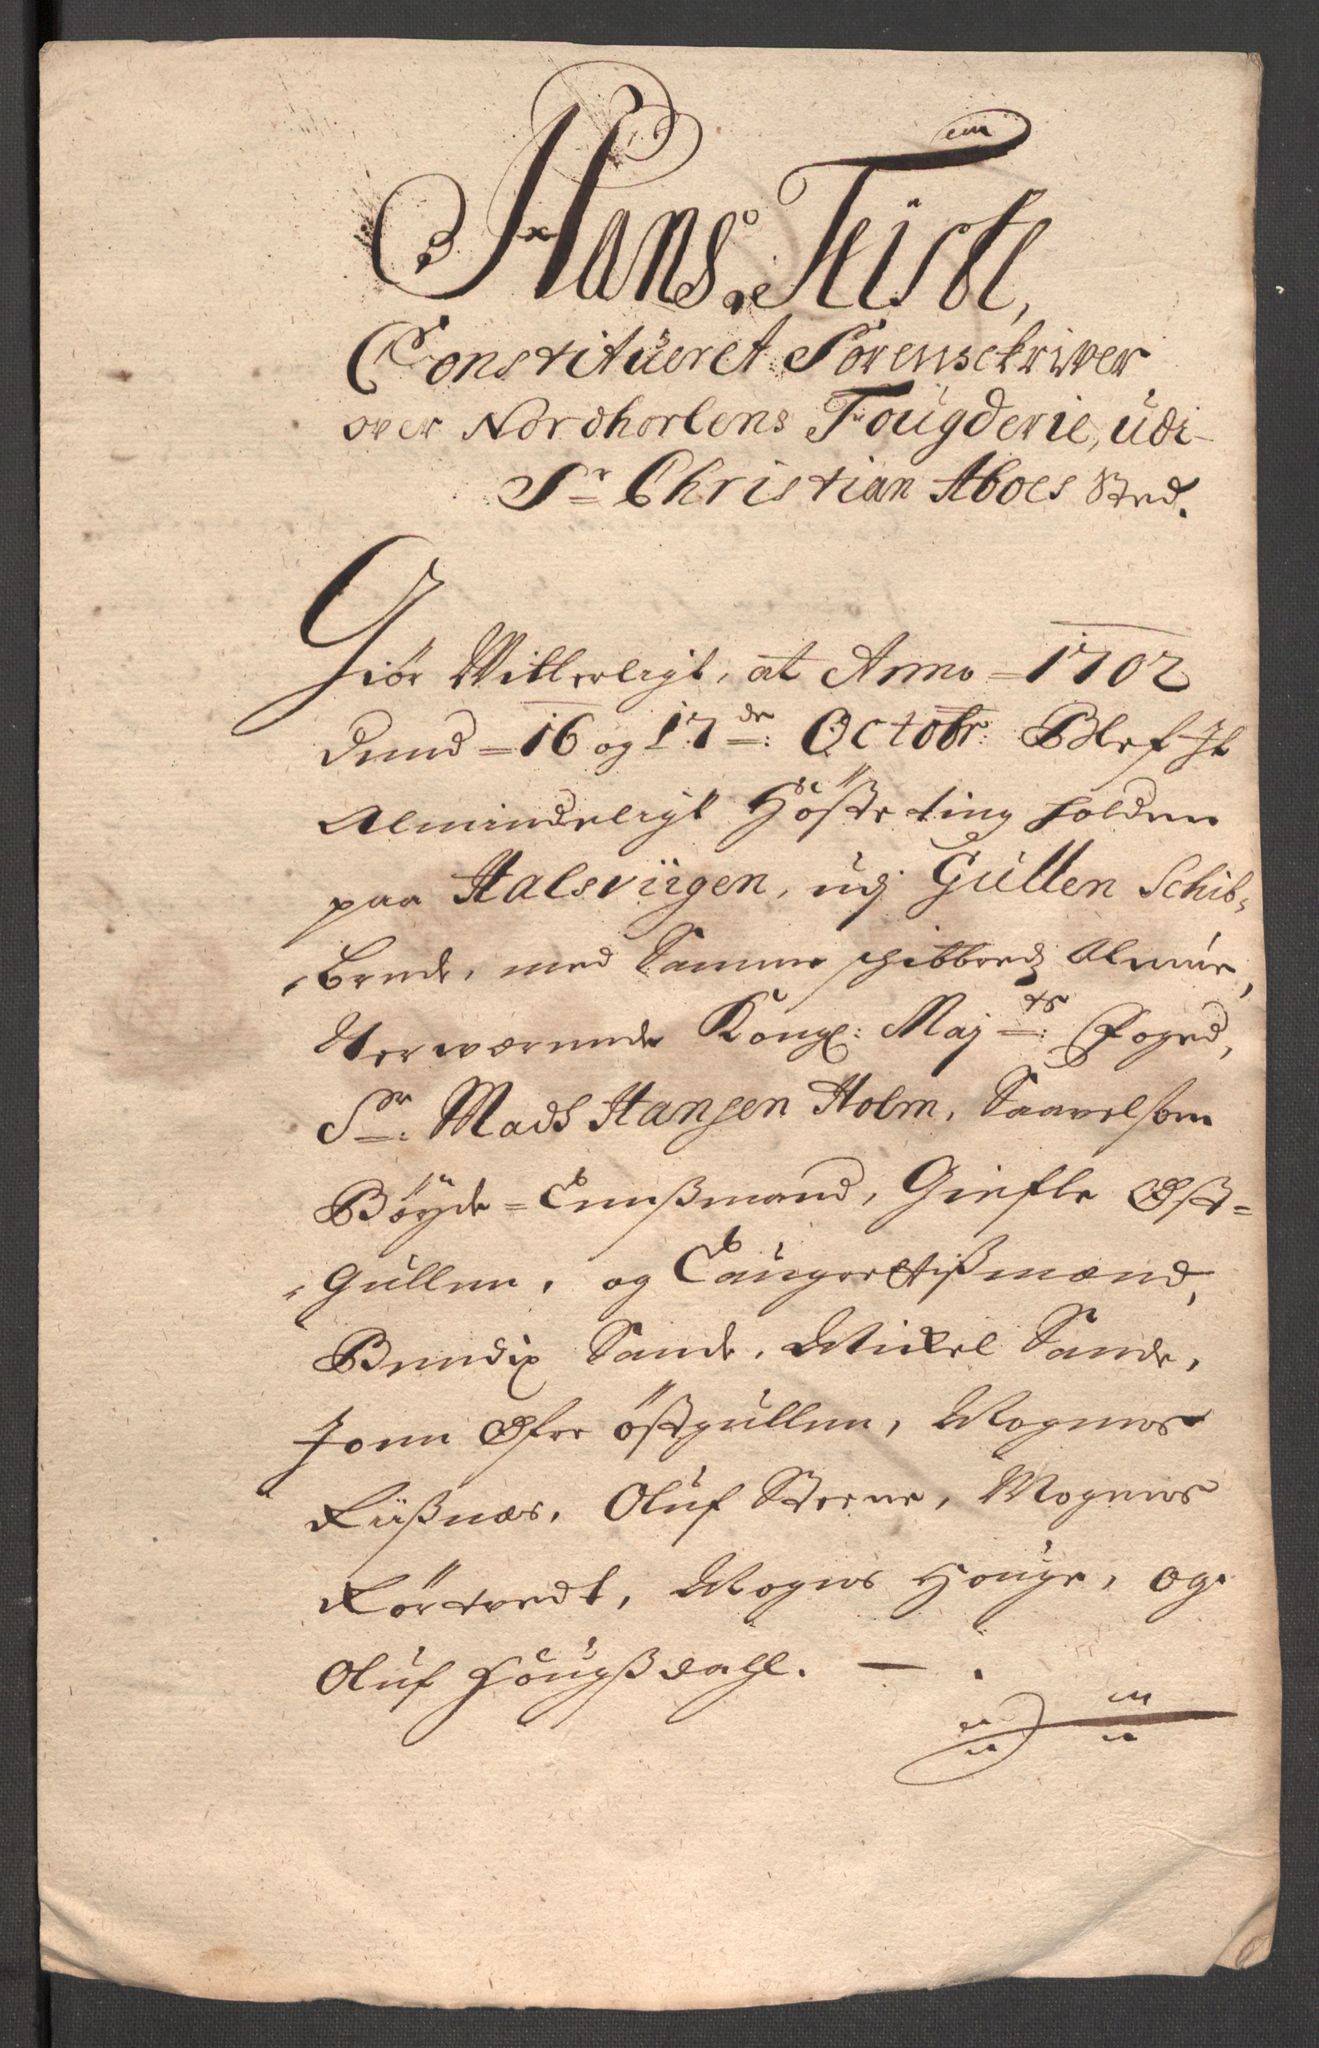 Hans Teiste,
Constitueret Sorenschriver
over Nordhorlens Fougderie, udi
Sr Christian Aboes Sted.
Giör Witterligt, at Anno 1702
dend 16 og 17de: Octobr: Blef It
Almindeligt Höste ting holden
paa Halsviigen, udj Gullen Schib-
brede, med Samme schibbredz Almue,
Nerværende Kongl: Maj ts: Foged,
Sr: Mads Hansen Holm, Saavelsom
Böyde-Lensmand, Giefle Øst-
Gullen, og Laugrettismænd,
Bendix Sande, Mickel Sande,
Jonn Øfre östgullen, Mogens
Riisnæs, Oluf Steene, Mogens
Rörtvedt, Mogns Houge, og
Oluf Hougsdahl.